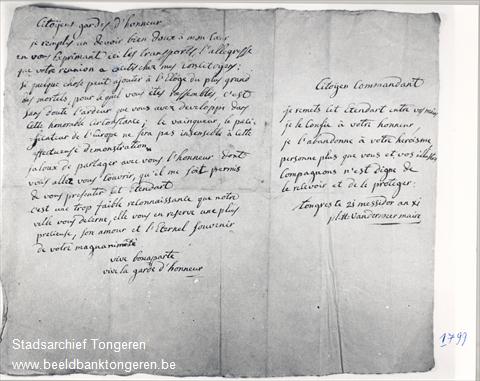 Citoyens gardes d'honneur
je remplis un devoir bien doux à mon cœur
en vous exprimant ici les transports l'allegresse
que votre reunion a excités chez mes concitoyens;
si quelque chose peut ajouter à l'éloge du plus grand
des mortels, pour qui vous êtes rassemblés c'est
sans doute l'ardeur que vous avez developpé dans
cette honorable circonstance; le vainqueur, le paci-
ficateur de l'Europe ne sera pas insensible à cette
affectueuse demonstration
jaloux de partager avec vous l'honneur dont
vous allez vous couvrir, qu'il me soit permis
de vous presenter cet étendart
c'est une trop faible reconnaissance que notre
ville vous decerne, elle vous en reserve une plus
precieuse, son amour et l'Eternel souvenir
de votre magnanimité
vive bonaparte
vive la garde d'honneur
Citoyen Commandant
je remets cet étendart entre vos mains
je le confie à votre honneur
je l'abandonne à votre heroïsme
personne plus que vous et vos
compagnons n'est digne de
le recevoir et de le proteger.
tongres le 25 messidor an xi
Vandermeer maire
1799
Stadsarchief Tongeren
www.beeldbanktongeren.be